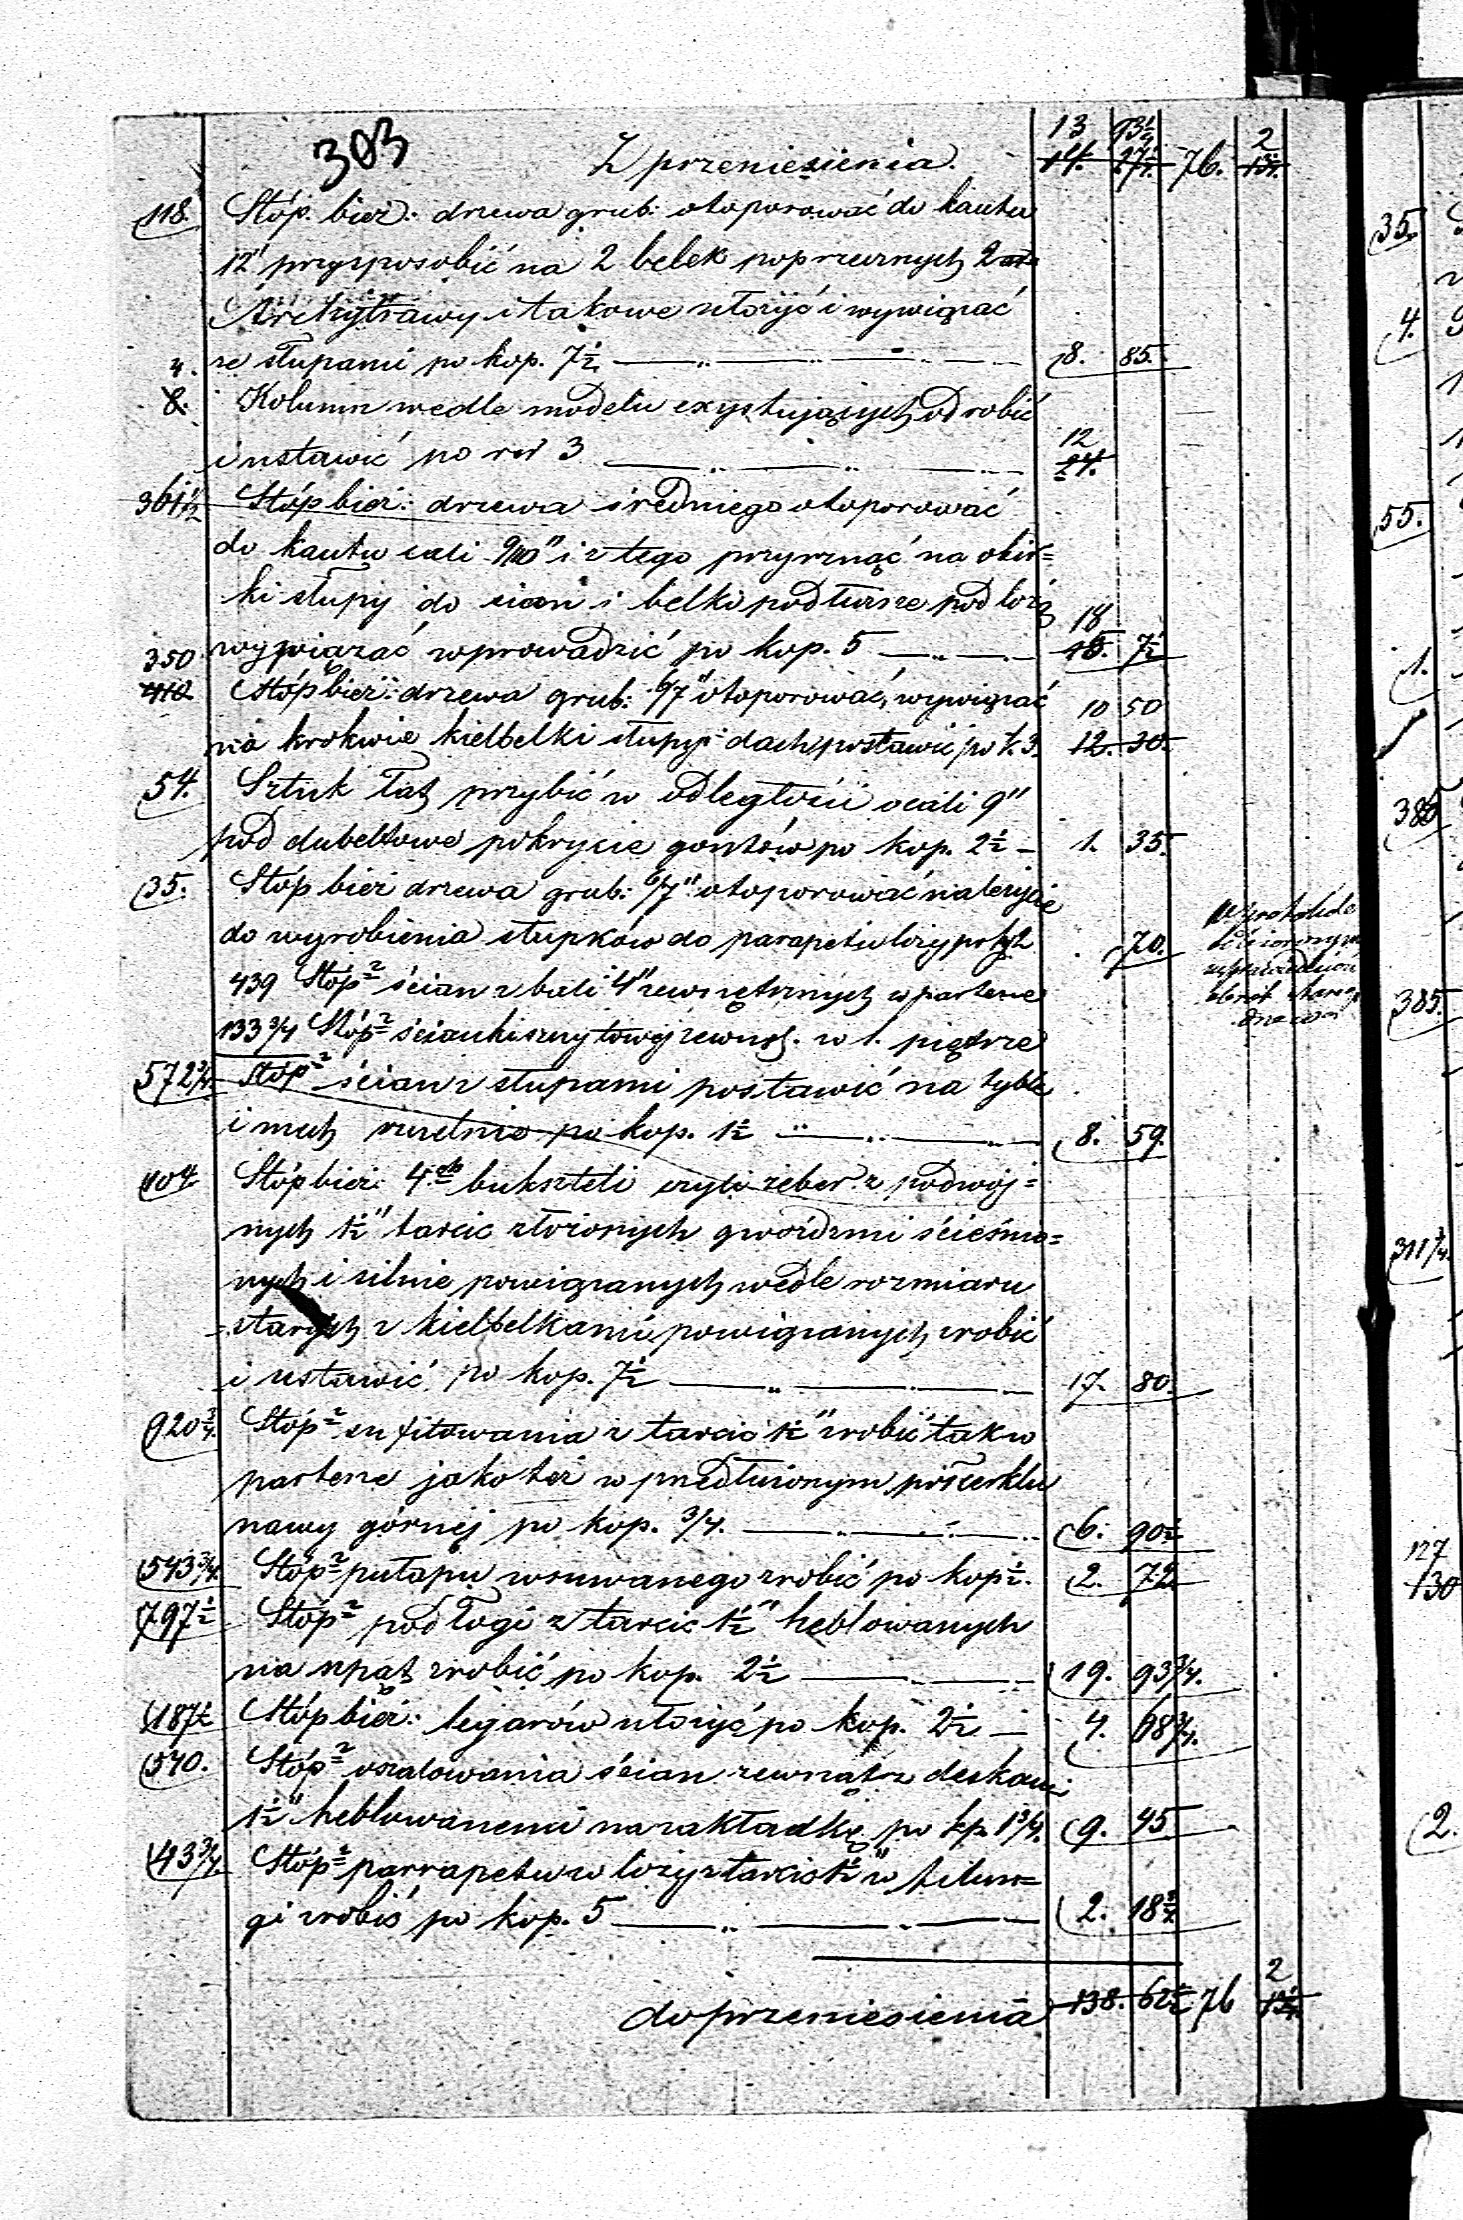 303
Z przeniesienia. 13 93¾ 14. 27½ 76. 2 13½.
118. Stóp. bież: drzewa grub: otoporować do kantu
12" przysposobić na 2 belek poprzecznych 2
Architrawy i takowe ułożyć i wywiązać
ze słupami po kop. 7½ 8. 85.
4. 8. Kolumn wedle modelu exystujących odrobić
i ustawić po rsr 3 12 24.
361½ Stóp bież: drzewa średniego otoporować
do kantu cali 9/10" i z tego przyrznąć na
słupy do ścian i belki podłużne pod lożą
wywiązać wprowadzić po kop. 5 18 15. 7½
350 410 Stóp bież: drzewa grub: 6/7" otoporować, wywiązać 10 50
na krokwie kielbelki słupy i dach postawić po k. 3. 12. 30.
54. Sztuk łat przybić w odległości o cali 9"
pod dubeltowe pokrycie gontów po kop. 2½ 1. 35.
35. Stóp bież drzewa grub: 6/7" otoporować należycie
do wyrobienia słupków do parapetu loży po k. 2 70.
439 Stóp² ścian z bali 4" zewnętrznych w parterze
133¾ Stóp² ścianki szrytowej zewnę. w 1. piętrze
572¾ Stóp² ścian z słupami postawić na tyble
i mech szczelnie po kop. 1½ 8. 59.
404 Stóp bież: 4. bukszteli czyli żeber z podwój=
nych 1½" tarcic złożonych gwoździmi ścieśnio=
nych i silnie powiązanych wedle rozmiaru
starych z kielbelkami powiązanych zrobić
i ustawić po kop. 7½ 17. 80.
920¾. Stóp² sufitowania z tarcic 1½" zrobić tak w
parterze jako też w przedłużonym półcerklu
nawy górnej po kop. ¾. 6. 90½
543¾. Stóp² pułapu wsuwanego zrobić po kop ½. 2. 72
797½ Stóp² podłogi z tarcic 1½" heblowanych
na szpat zrobić po kop. 2½ 19. 93¾.
187½ Stóp bież: legarów ułożyć po kop. 2½ 4. 68¾.
540. Stóp² oszalowania ścian zewnątrz deskami
1½" heblowanemi na zakładkę po kp. 1¾. 9. 45
43¾ Stóp² parrapetu w loży z tarcic 1½" w filun=
gi zrobić po kop. 5 2. 18¾
do przeniesienia 138. 62½ 76 2 13½